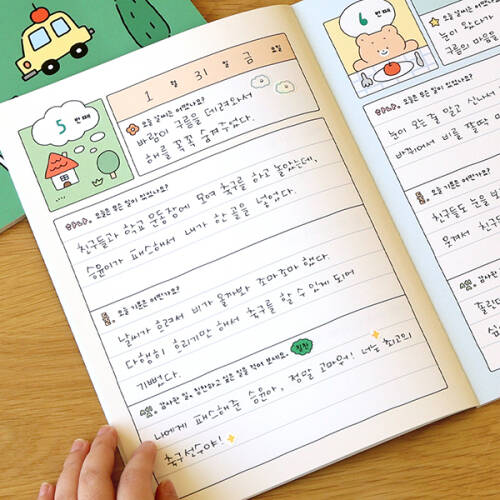 5 번째
1 월 31 일 금 요일
오늘 날씨는 어땠나요?
바람이 구름을 데려와서
해를 꼭꼭 숨겨주었다.
오늘은 무슨 일이 있었나요?
친구들과 학교 운동장에 모여 축구를 하고 놀았는데,
승윤이가 패스해서 내가 한 골을 넣었다.
오늘 기분은 어떤가요?
날씨가 흐려서 비가 올까봐 조마조마 했다.
다행히 흐리기만 해서 축구를 할 수 있게 되어
기뻤다.
감사한 일, 칭찬하고 싶은 일을 적어 보세요.
나에게 패스해준 승윤아, 정말 고마워! 너는 최고의
축구선수야!
6 번째
오늘 날씨는 어땠나요?
눈이 왔다가
구름의 마음을
눈이 오는 줄 알고 신나서
바뀌어서 비를 잘
오늘 기분은 어떤가요?
친구들도 눈을
웃겨서 친구
감사한